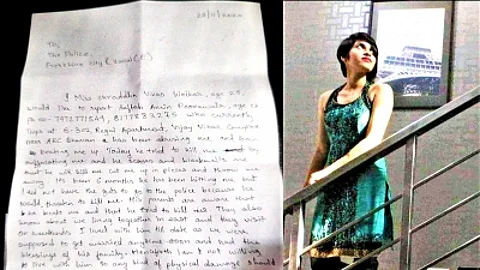 23/11/2020
To
The Police,
I Miss Shraddha Vikas Walkar, age 25
would like to report Aftab Amin Poonawala, age 26
who currently
lives at B-302 Regal Apartment, Vijay Vihar Complex
near ABC has been abusing me and
beating me up. Today he tried to kill me by
suffocating me and he scares and blackmails me
that he will kill me cut me up in pieces and throw me
away. Its been 6 months he has been hitting me but
I did not have the guts to go to the police because he
would threaten to kill me. His parents are aware that
he beats me and that he tried to kill me. They also
know about we living together in and they visit
on weekends. I lived with him till date as we were
supposed to get married anytime soon and had the
blessings of his family. Henceforth I am not willing
to live with him so any kind of physical damage should